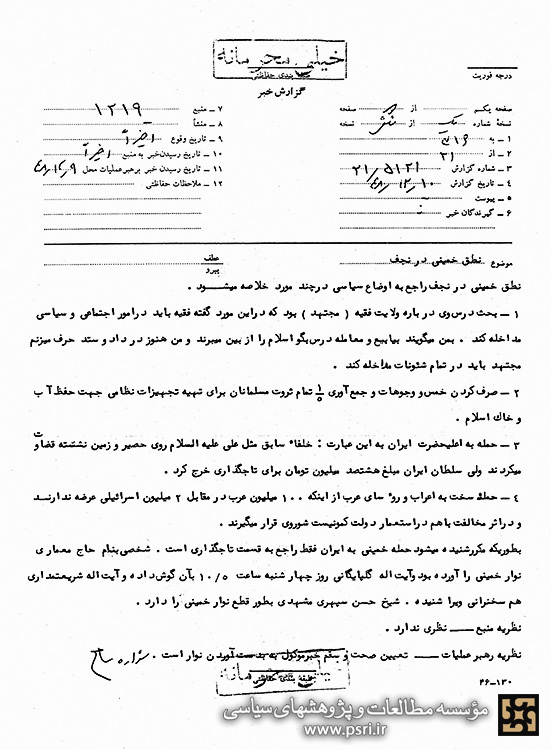 خیلی محرمانه
طبقه بندی حفاظتی
درجه فوریت
گزارش خبر
صفحه یکم از صفحه
نسخه شماره یک از شش نسخه
۱ ـ به ۳۱۶
۲ ـ از ۲۱
۳ ـ شماره گزارش ۲۱/۵۱۲۱
۴ ـ تاریخ گزارش ۴۸/۱۲/۱۰
۵ ـ پیوست
۶ ـ گیرندگان خبر
۷ ـ منبع ۱۲۱۹
۸ ـ منشأ
۹ ـ تاریخ وقوع اخیراً
۱۰ ـ تاریخ رسیدن خبر به منبع اخیراً
۱۱ ـ تاریخ رسیدن خبر برهبر عملیات محل ۴۸/۱۲/۹
۱۲ ـ ملاحظات حفاظتی
موضوع نطق خمینی در نجف
عطف
پیرو
نطق خمینی در نجف راجع به اوضاع سیاسی درچند مورد خلاصه میشود .
۱ ـ بحث درس وی در باره ولایت فقیه ( مجتهد ) بود که دراین مورد گفته فقیه باید درامور اجتماعی و سیاسی
مداخله کند . بمن میگویند بیا بیع و معامله درس بگو اسلام را از بین میبرند و من هنوز در داد و ستد حرف میزنم
مجتهد باید در تمام شئونات مداخله کند .
۲ ـ صرف کردن خمس و وجوهات و جمع آوری ۱/۵ تمام ثروت مسلمانان برای تهیه تجهیزات نظامی جهت حفظ آب
و خاک اسلام .
۳ ـ حمله به اعلیحضرت ایران به این عبارت : خلفاء سابق مثل علی علیه السلام روی حصیر و زمین نشسته قضاوت
میکردند ولی سلطان ایران مبلغ هشتصد میلیون تومان برای تاجگذاری خرج کرد .
۴ ـ حمله سخت به اعراب و رؤسای عرب از اینکه ۱۰۰ میلیون عرب در مقابل ۲ میلیون اسرائیلی عرضه ندارند
و دراثر مخالفت باهم دراستعمار دولت کمونیست شوروی قرار میگیرند .
بطوریکه مکرر شنیده میشود حمله خمینی به ایران فقط راجع به قسمت تاجگذاری است . شخصی بنام حاج معماری
نوار خمینی را آورده بود وآیت اله گلپایگانی روز چهار شنبه ساعت ۱۰/۵ بآن گوش داده و آیت اله شریعتمداری
هم سخنرانی ویرا شنیده . شیخ حسن سپهری مشهدی بطور قطع نوار خمینی را دارد .
نظریه منبع ـــ نظری ندارد .
نظریه رهبر عملیات ـــ تعیین صحت و سقم خبر موکول به بدست آوردن نوار است .
خیلی محرمانه
طبقه بندی حفاظتی
۴۶-۱۳۰
مؤسسه مطالعات و پژوهشهای سیاسی
www.psri.ir